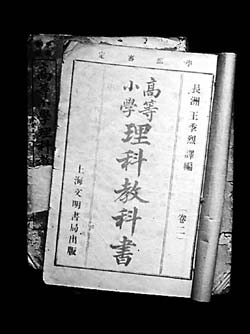 學部審定
長洲 王季烈 譯編
卷二
高等小學理科教科書
上海文明書局出版